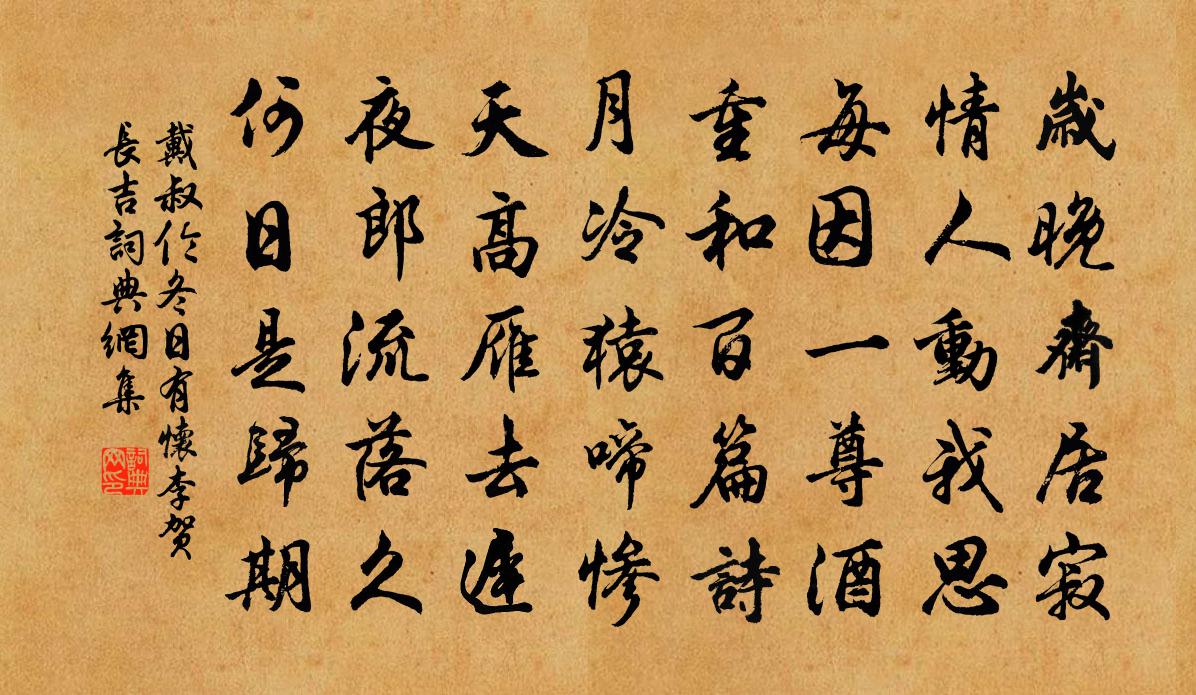 歲晚齋居寂
情人動我思
每因一尊酒
重和百篇詩
月冷猿啼慘
天高雁去遲
夜郎流落久
何日是歸期
戴叔倫冬日有懷李賀
長吉詞典網集
詞典網印